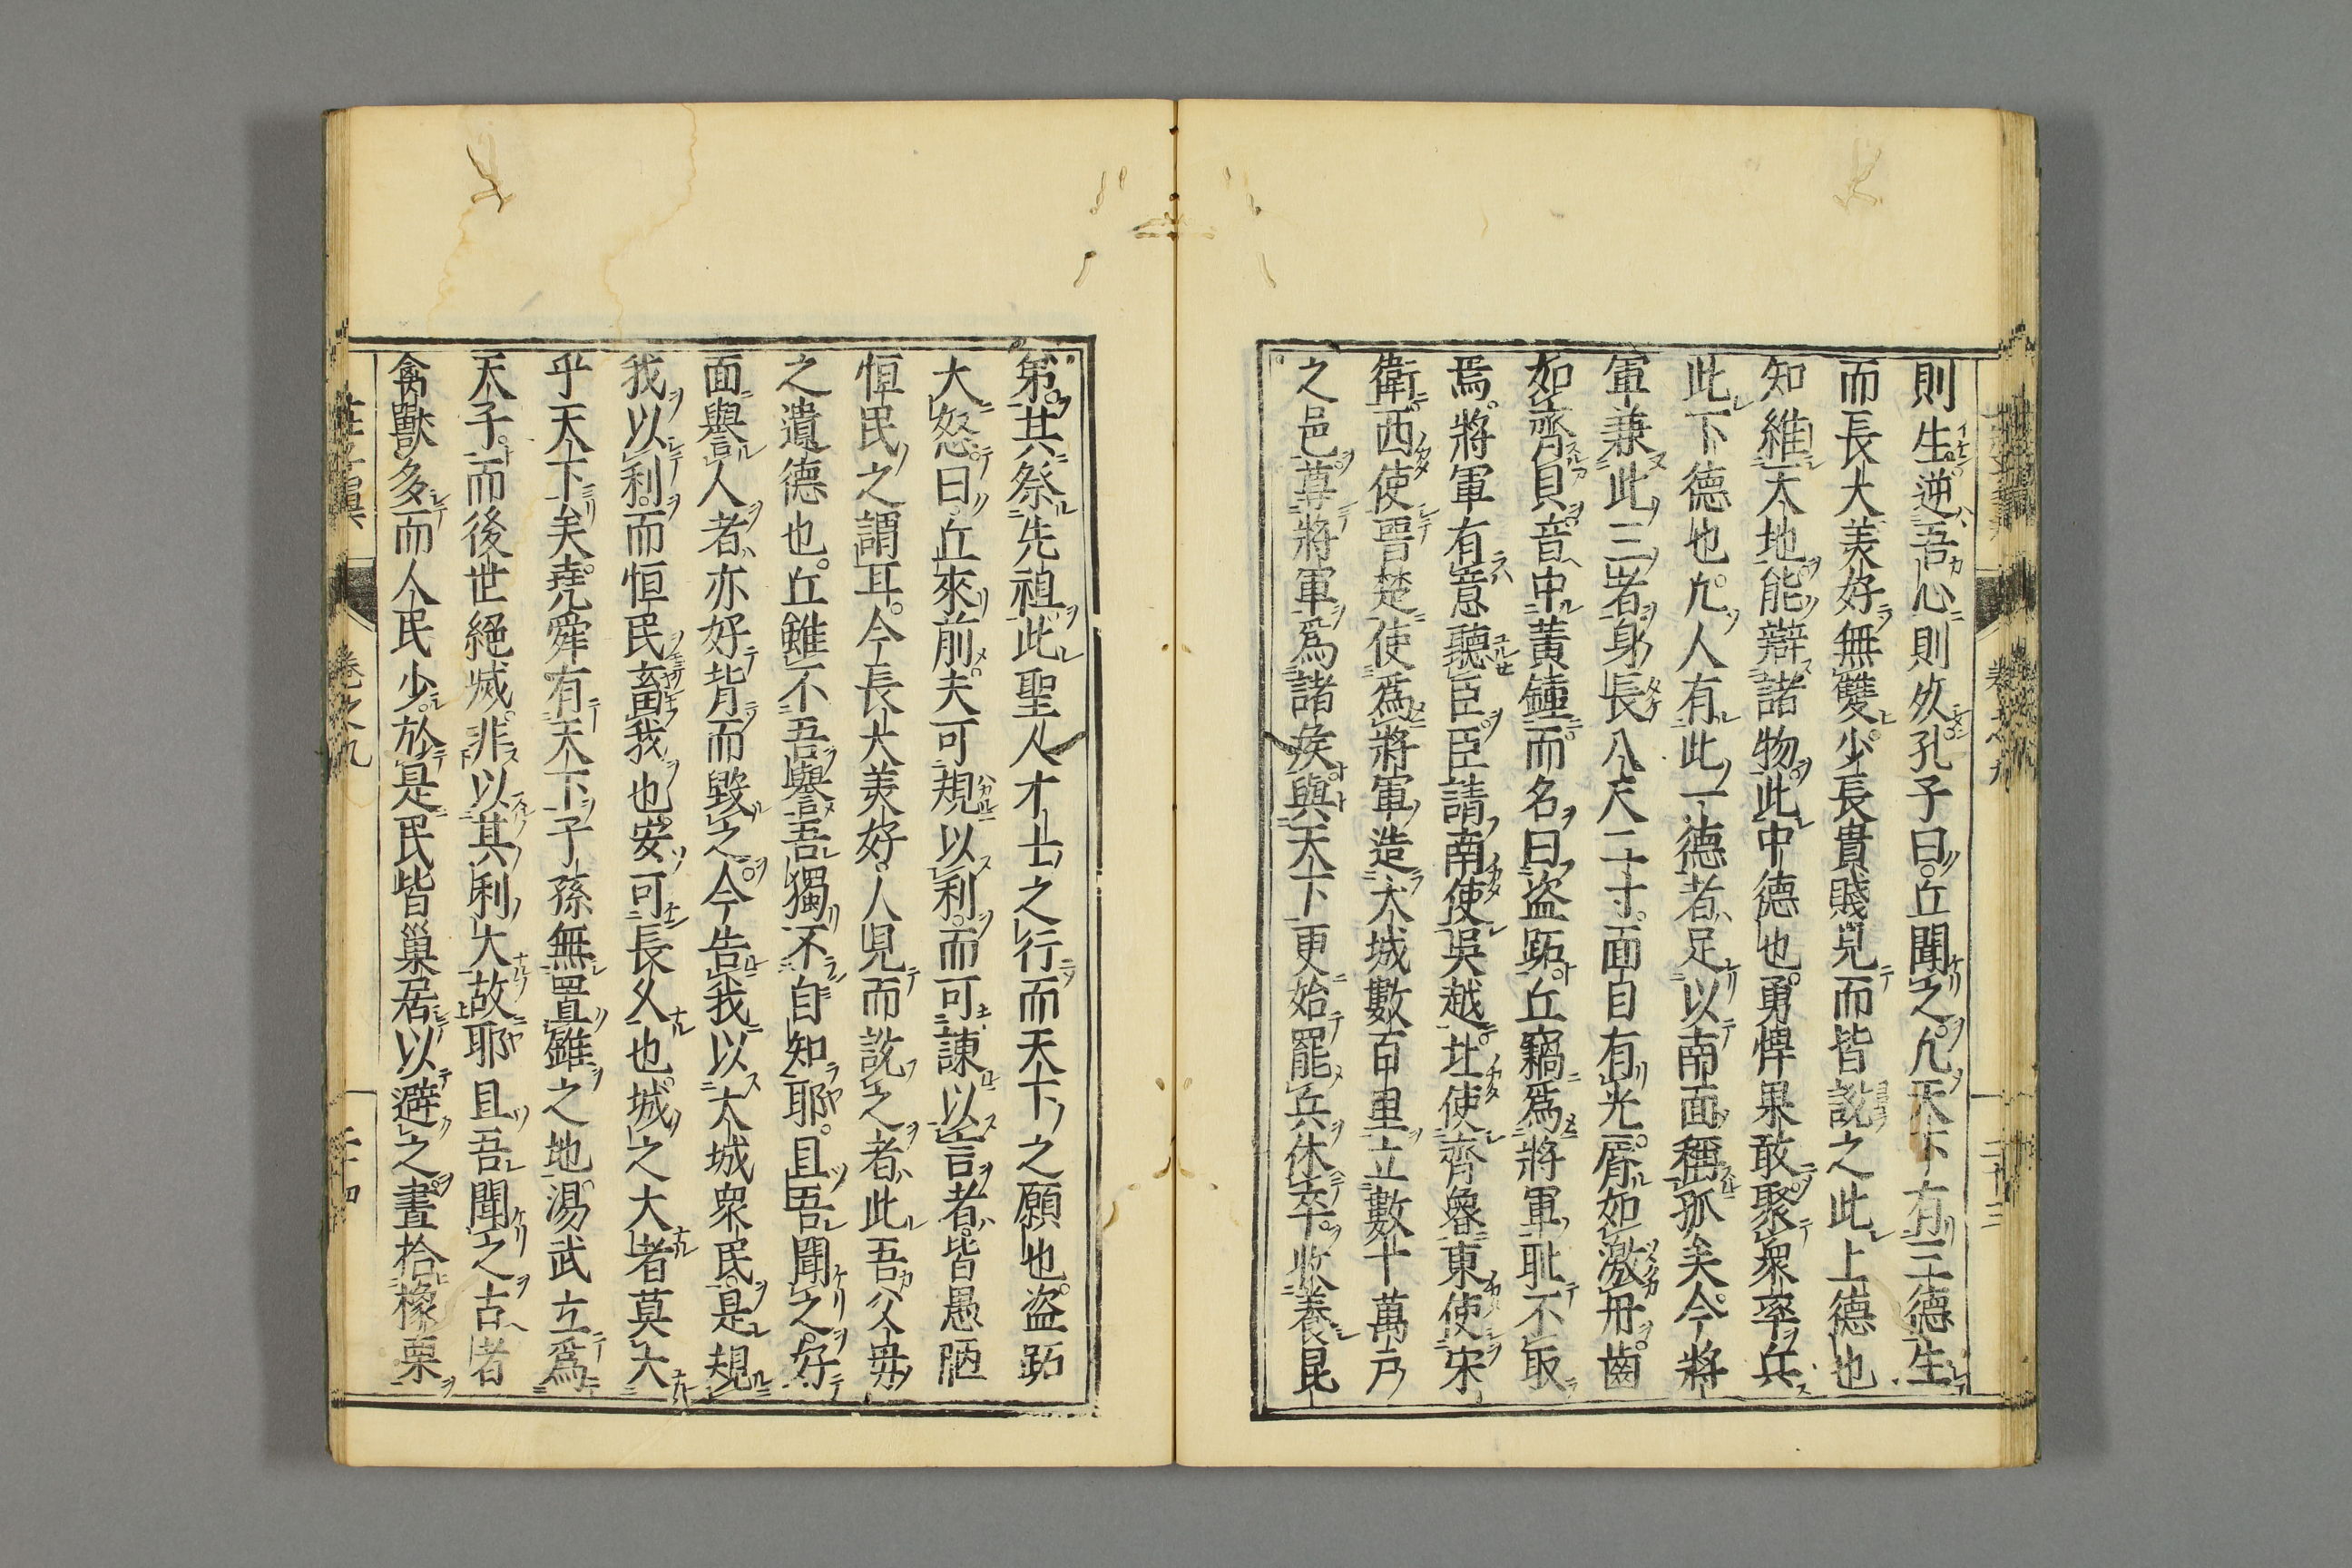 則生逆吾心則攺孔子曰丘聞之凢天下有三德生
而長大羙好無雙少長貴賤見而皆說之此上德也
知維天地能辯諸物此中德也勇悍果敢聚衆率兵
此下德也凢人有此一德者足以南面稱孤矣今將
軍兼此三者身長八尺二寸面目有光脣如激丹齒
如齊貝音中黃鍾而名曰盜跖丘竊爲將軍耻不取
焉將軍有意聽臣臣請南使吳越北使齊魯東使宋
衛西使晋楚使爲將軍造大城數百里立數十萬戸
之邑尊將軍爲諸侯與天下更始罷兵休卒收養昆
第其祭先祖此聖人才士之行而天下之願也盜跖
大怒曰丘來前夫可規以利而可諫以言者皆愚陋
恒民之謂耳今長大羙好人見而說之者此吾父毋
之遺德也丘雖不吾譽吾獨不自知耶且吾聞之好
面譽人者亦好背而毀之今告我以大城衆民是規
我以利而恒民畜我也安可長乆也城之大者莫大
乎天下矣堯舜有天下子孫無置錐之地湯武立爲
天子而後世絕滅非以其利大故耶且吾聞之古者
禽獸多而人民少於是民皆巢居以避之晝拾橡栗
卷之九